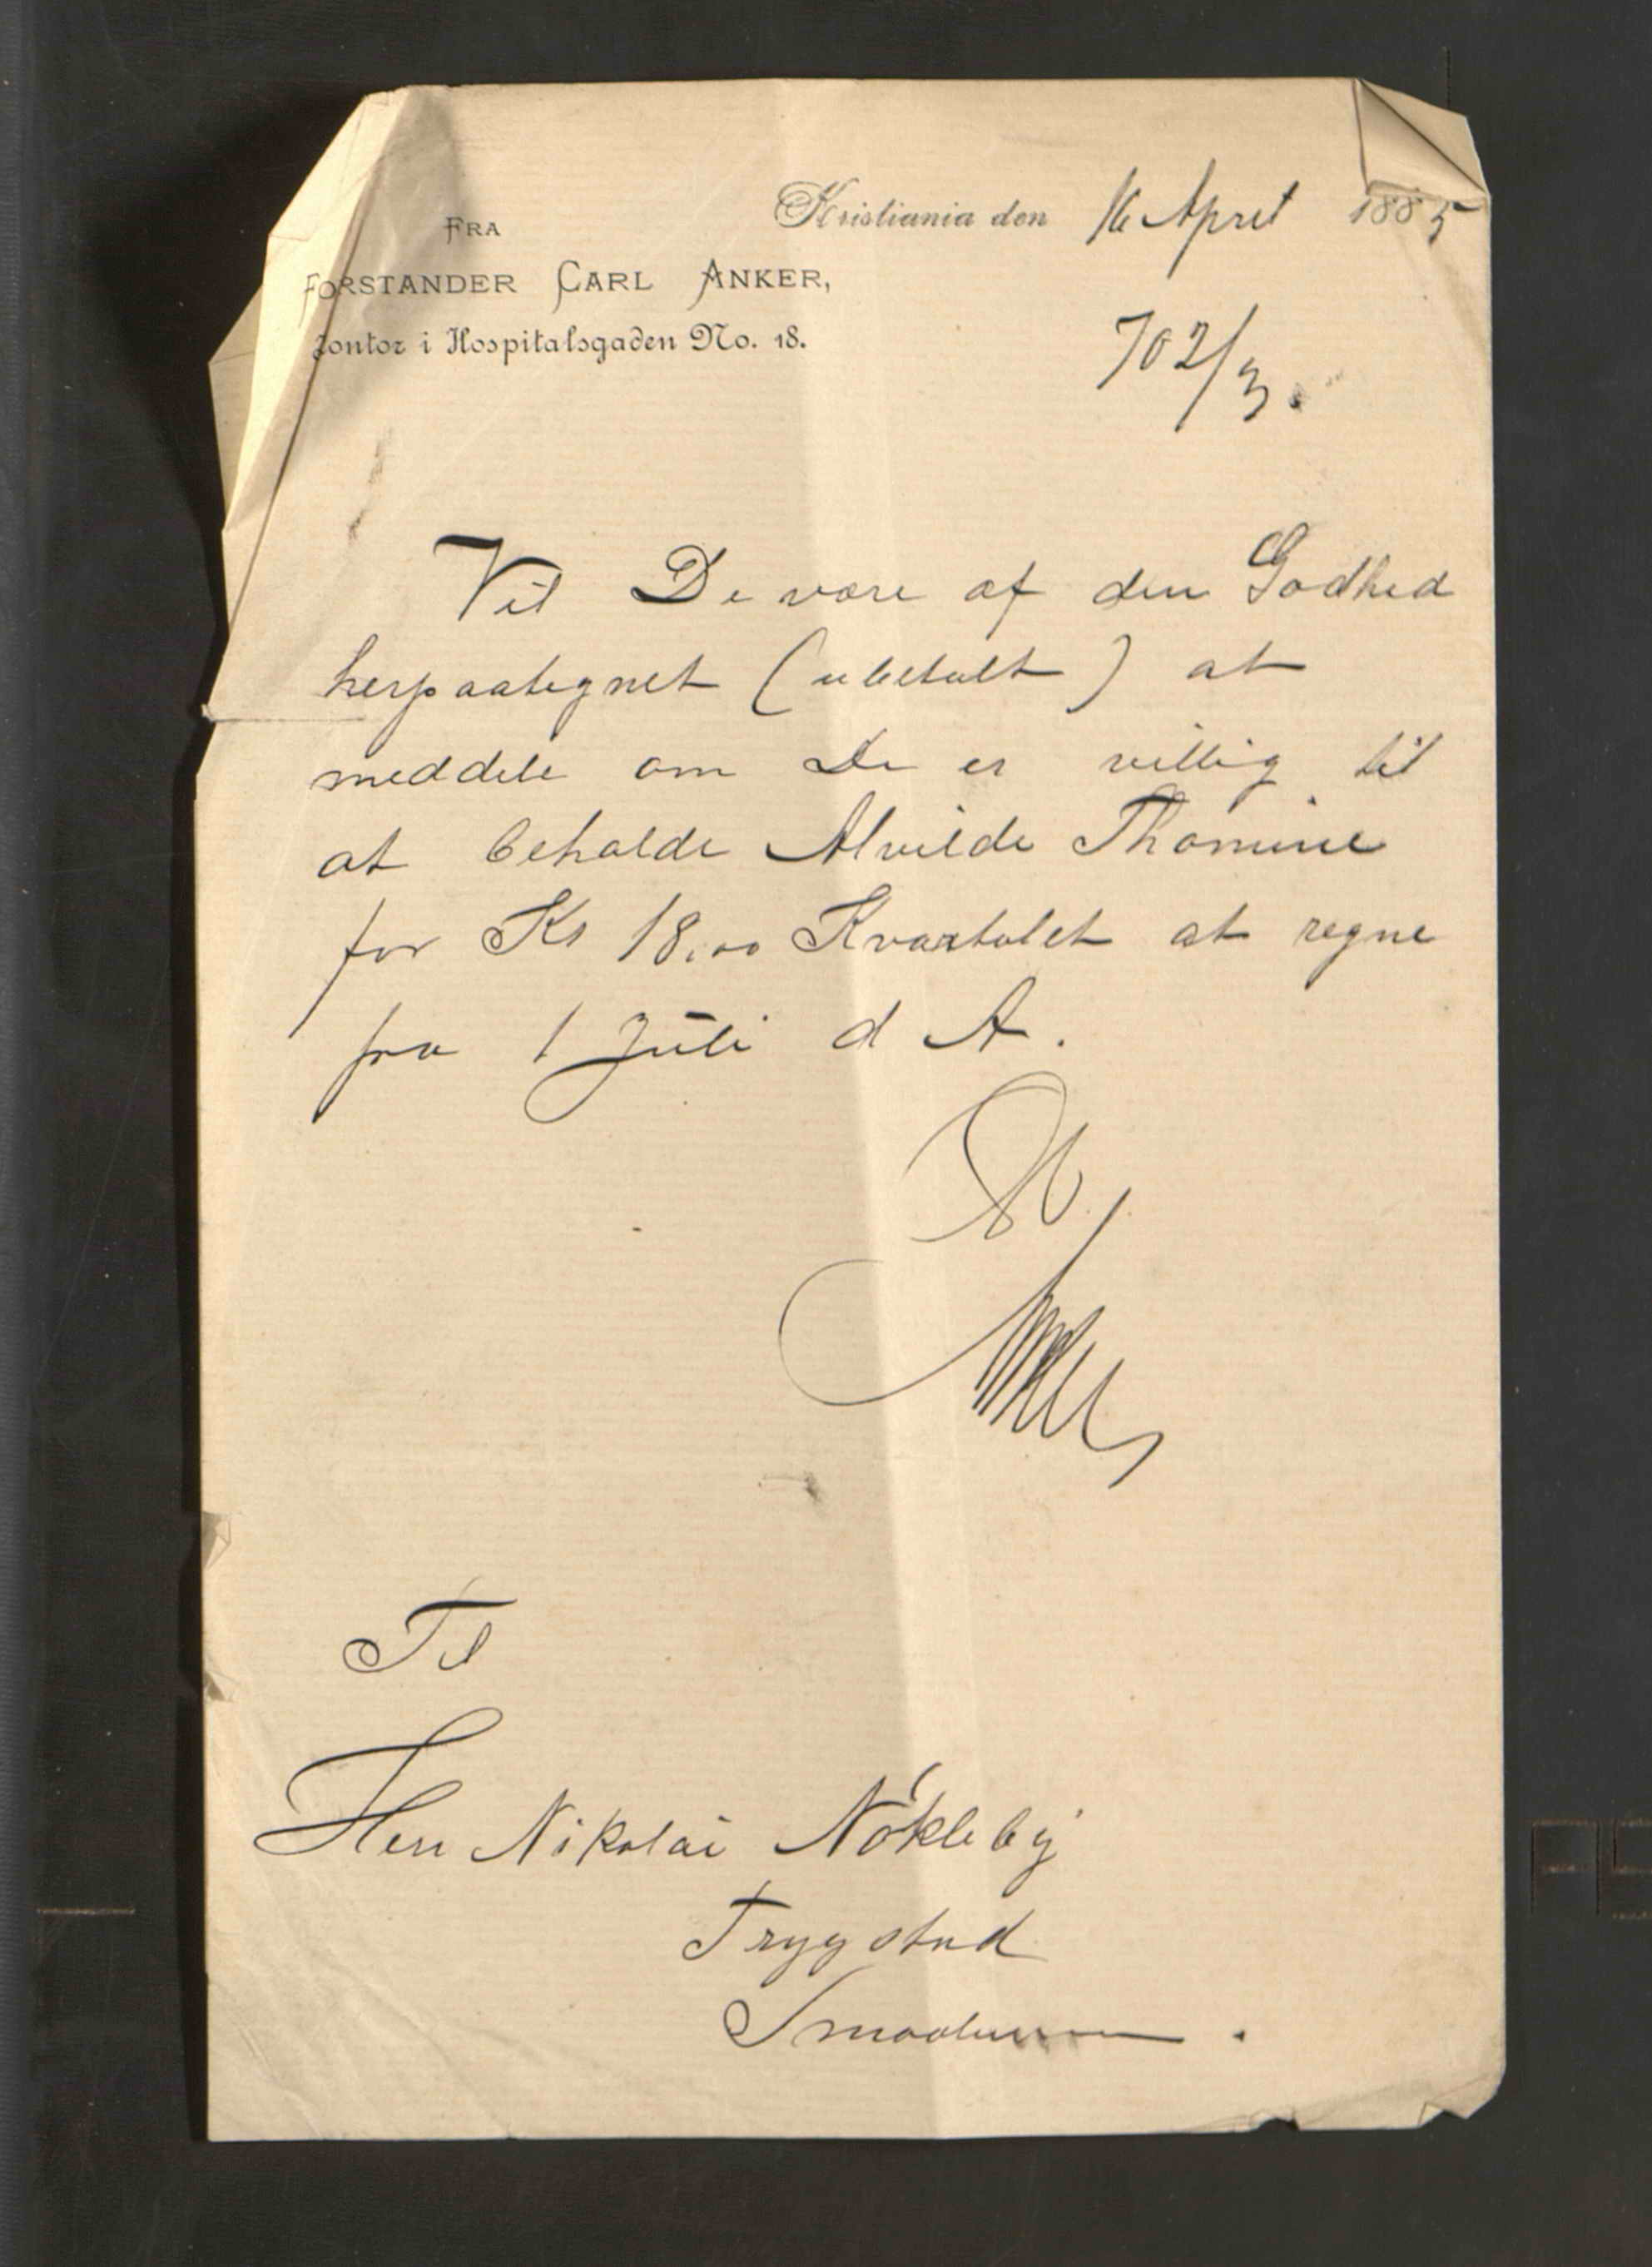 FRA
FORSTANDER CARL ANKER,
Contor i Hospitalsgaden No. 18.
Kristiania den 16 April 1885
702/3.
Vil De være af den Godhed
herpaategnet (ubetalt) at
meddele om De er villig til
at beholde Alvilde Thomine
for Kr 18.00 Kvartalet at regne
fra 1 Juli d A.
Til
Herr Nikolai Nökleby
Trygstad